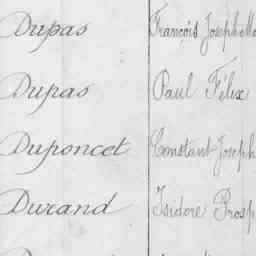 Dupas François Joseph
Dupas Paul Félix
Duponcet Constant Joseph
Durand Isidore Prosp